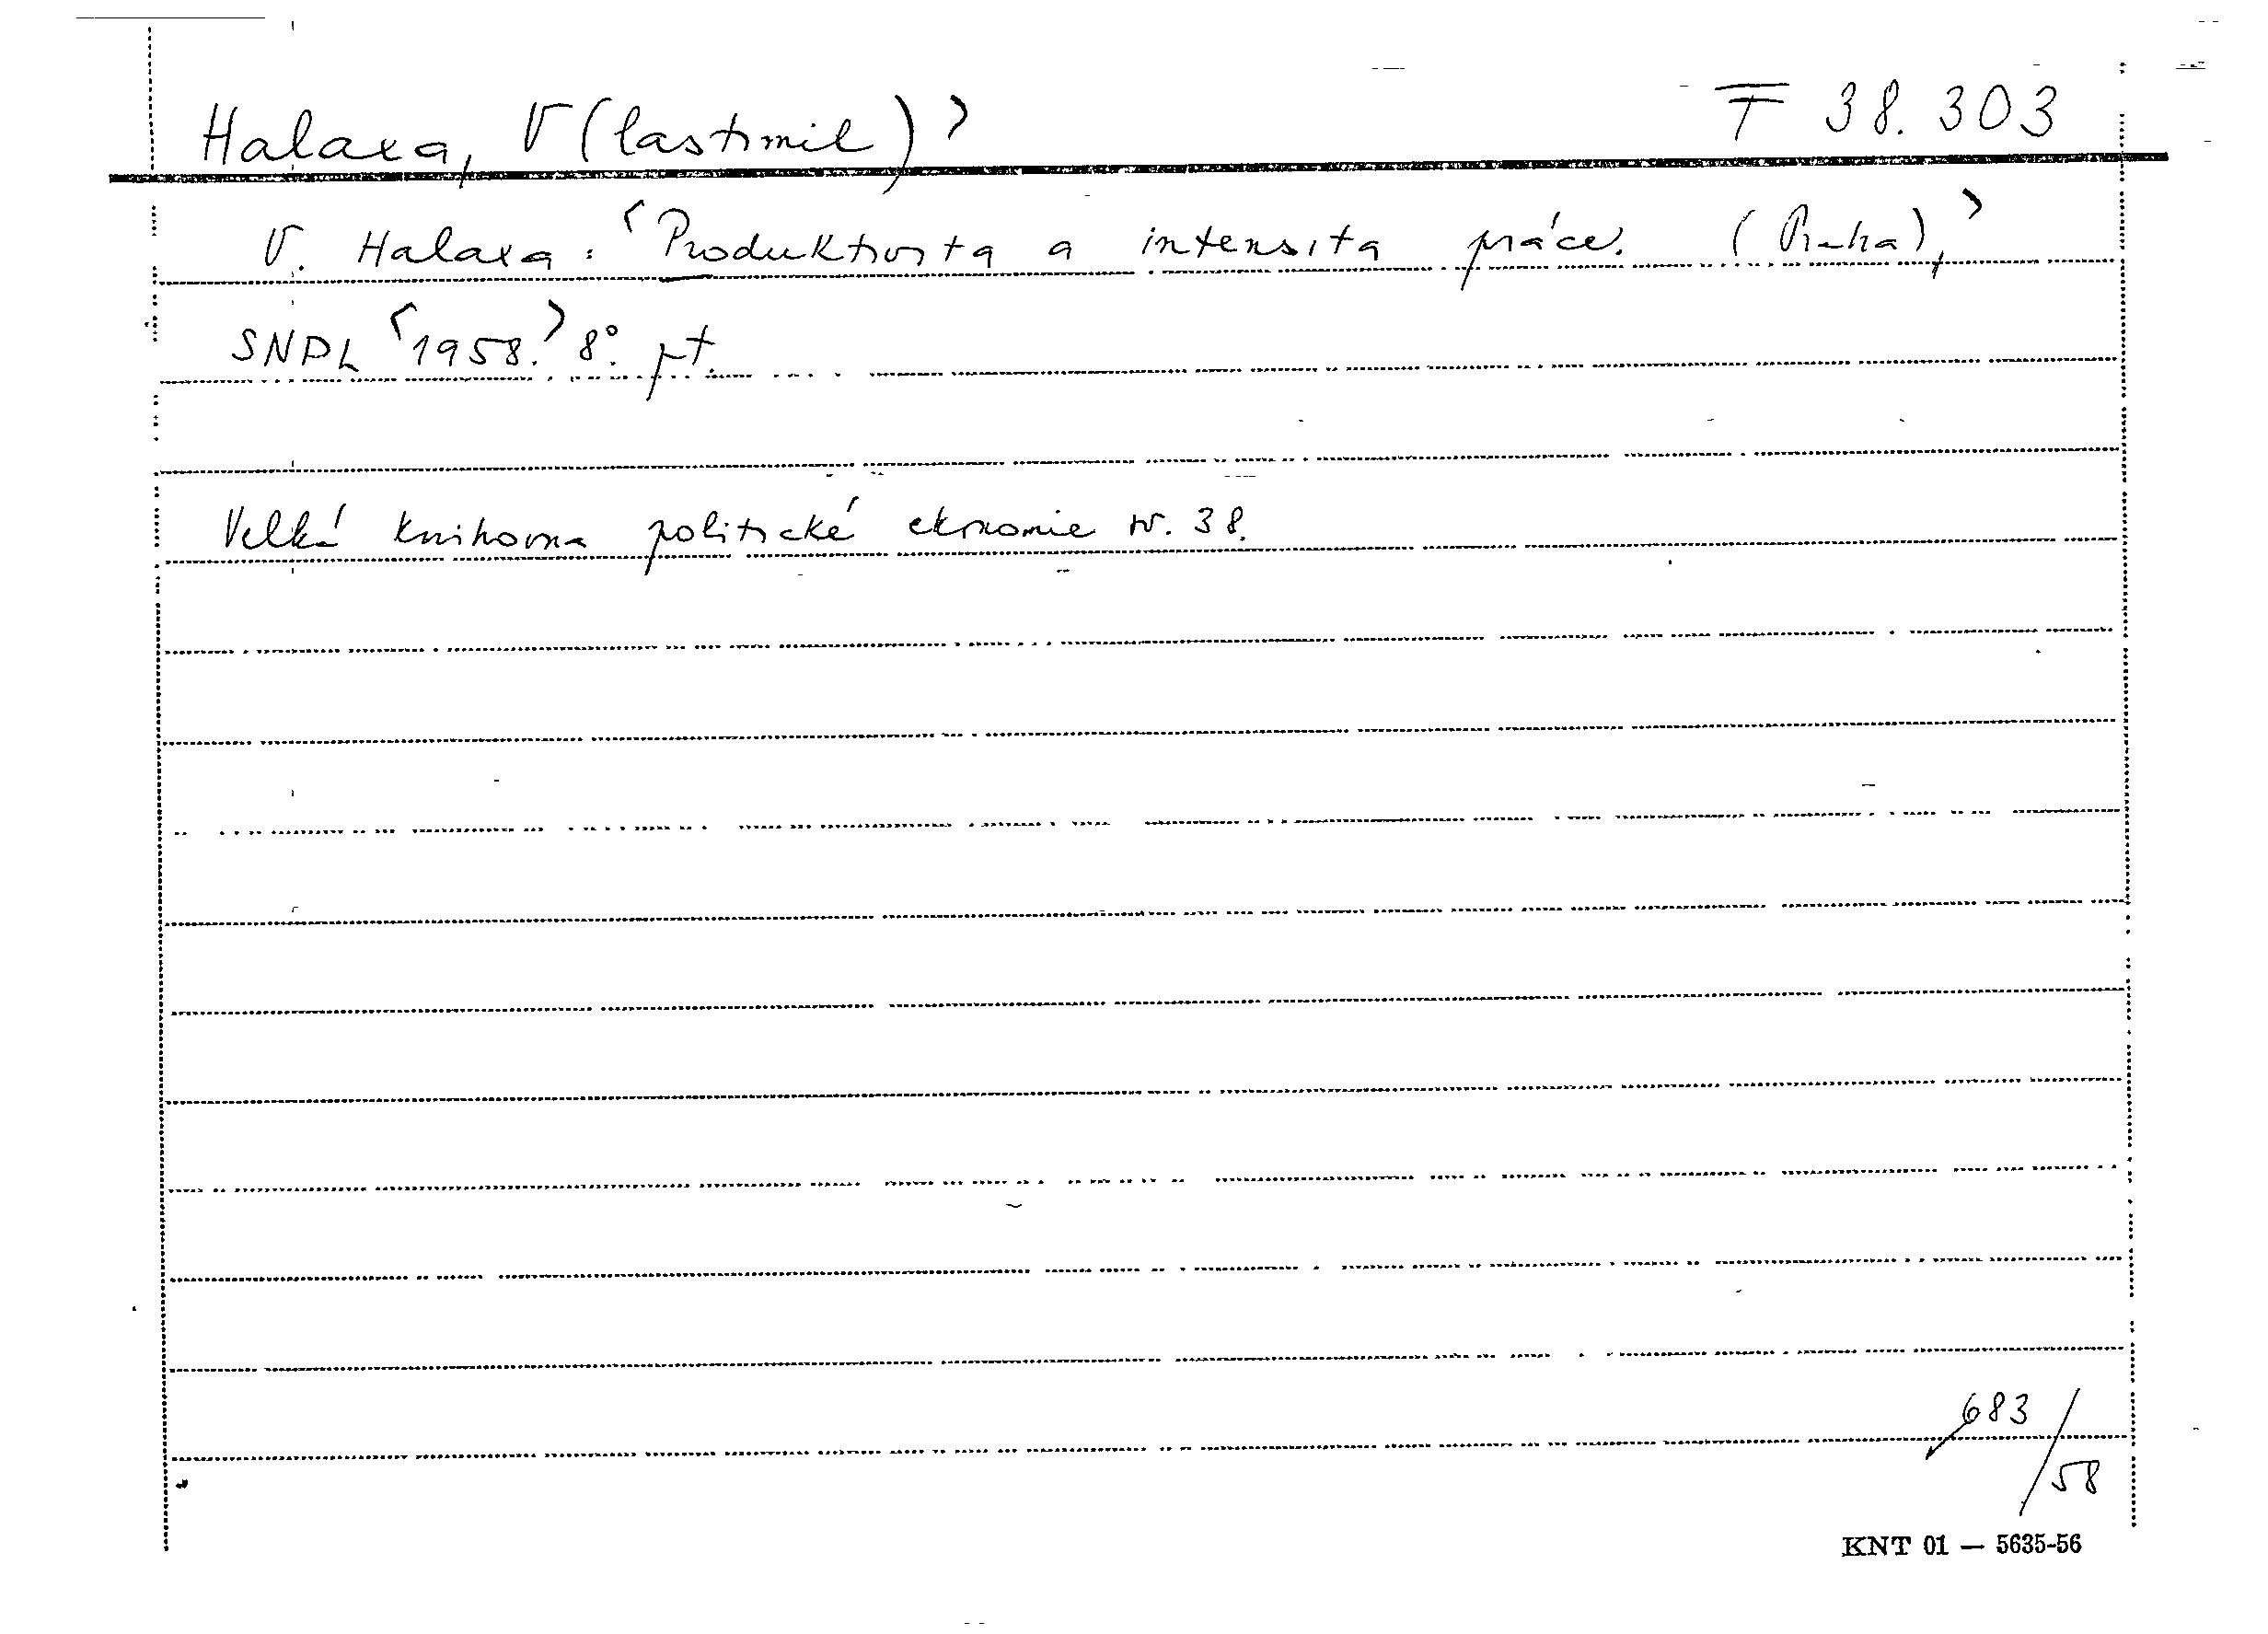 Halaxa, V(lastimil)> T 38.303
V. Halaxa: <Produktivita a intensita práce. (Praha),>
SNPL <1958.> 8°. pt.
Velká knihovna politické ekonomie sv. 38.
683/58
KNT 01 — 5635-56